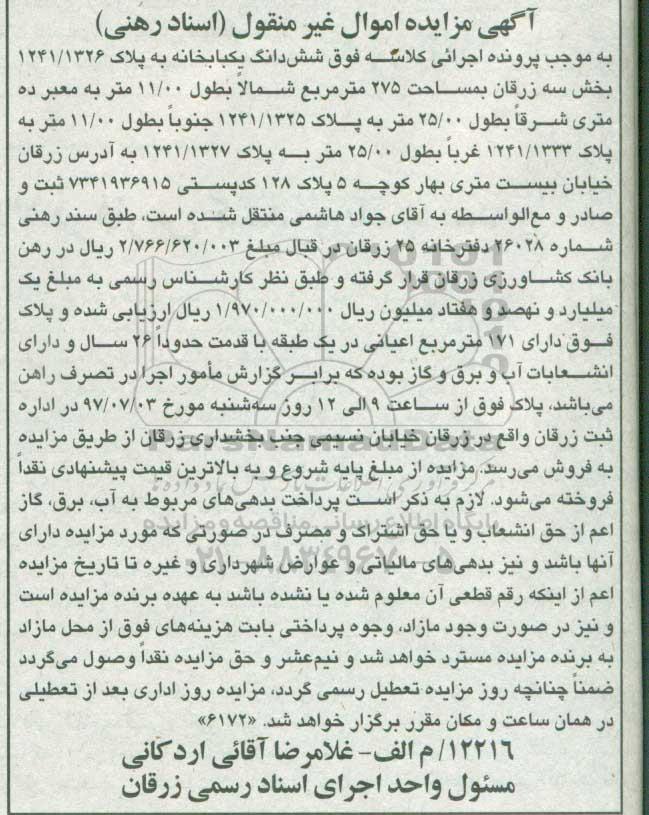 آگهی مزایده اموال غیر منقول (اسناد رهنی)
به موجب پرونده اجرائی کلاسه فوق شش‌دانگ یکبابخانه به پلاک ۱۲۴۱/۱۳۲۶
بخش سه زرقان بمساحت ۲۷۵ مترمربع شمالاً بطول ۱۱/۰۰ متر به معبر ده
متری شرقاً بطول ۲۵/۰۰ متر به پلاک ۱۲۴۱/۱۳۲۵ جنوباً بطول ۱۱/۰۰ متر به
پلاک ۱۲۴۱/۱۳۳۳ غرباً بطول ۲۵/۰۰ متر به پلاک ۱۲۴۱/۱۳۲۷ به آدرس زرقان
خیابان بیست متری بهار کوچه ۵ پلاک ۱۲۸ کدپستی ۷۳۴۱۹۳۶۹۱۵ ثبت و
صادر و مع‌الواسطه به آقای جواد هاشمی منتقل شده است، طبق سند رهنی
شماره ۲۶۰۲۸ دفترخانه ۲۵ زرقان در قبال مبلغ ۲/۷۶۶/۶۲۰/۰۰۳ ریال در رهن
بانک کشاورزی زرقان قرار گرفته و طبق نظر کارشناس رسمی به مبلغ یک
میلیارد و نهصد و هفتاد میلیون ریال ۱/۹۷۰/۰۰۰/۰۰۰ ریال ارزیابی شده و پلاک
فوق دارای ۱۷۱ مترمربع اعیانی در یک طبقه با قدمت حدوداً ۲۶ سال و دارای
انشعابات آب و برق و گاز بوده که برابر گزارش مأمور اجرا در تصرف راهن
می‌باشد، پلاک فوق از ساعت ۹ الی ۱۲ روز سه‌شنبه مورخ ۹۷/۰۷/۰۳ در اداره
ثبت زرقان واقع در زرقان خیابان نسیمی جنب بخشداری زرقان از طریق مزایده
به فروش می‌رسد. مزایده از مبلغ پایه شروع و به بالاترین قیمت پیشنهادی نقداً
فروخته می‌شود. لازم به ذکر است پرداخت بدهی‌های مربوط به آب، برق، گاز
اعم از حق انشعاب و یا حق اشتراک و مصرف در صورتی که مورد مزایده دارای
آنها باشد و نیز بدهی‌های مالیاتی و عوارض شهرداری و غیره تا تاریخ مزایده
اعم از اینکه رقم قطعی آن معلوم شده یا نشده باشد به عهده برنده مزایده است
و نیز در صورت وجود مازاد، وجوه پرداختی بابت هزینه‌های فوق از محل مازاد
به برنده مزایده مسترد خواهد شد و نیم‌عشر و حق مزایده نقداً وصول می‌گردد
ضمناً چنانچه روز مزایده تعطیل رسمی گردد، مزایده روز اداری بعد از تعطیلی
در همان ساعت و مکان مقرر برگزار خواهد شد. «۶۱۷۲»
۱۲۲۱۶/ م الف- غلامرضا آقائی اردکانی
مسئول واحد اجرای اسناد رسمی زرقان
ParsNamadData
پایگاه اطلاع رسانی مناقصه و مزایده
۰۲۱-۸۸۳۴۹۶۷۰-۵